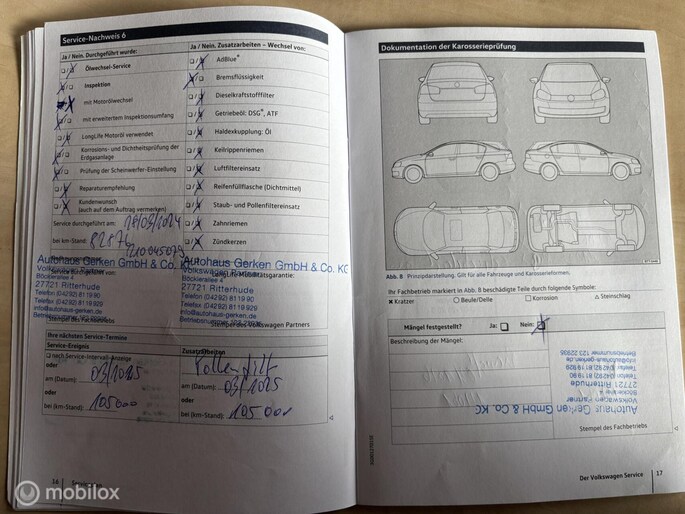 Service-Nachweis 6
Ja / Nein. Durchgeführt wurde:
Ölwechsel-Service
Inspektion
mit Motorölwechsel
mit erweitertem Inspektionsumfang
LongLife Motoröl verwendet
Korrosions- und Dichtheitsprüfung der Erdgasanlage
Prüfung der Scheinwerfer-Einstellung
Reparaturempfehlung
Kundenwunsch
(auch auf dem Auftrag vermerken)
Service durchgeführt am:
bei km-Stand:
Autohaus Gerken GmbH & Co. KG
Volkswagen Partner
Böcklerallee 4
27721 Ritterhude
Telefon (04292) 81 19 90
Telefax (04292) 81 19 929
info@autohaus-gerken.de
Stempel des Fachbetriebs
Ja / Nein. Zusatzarbeiten – Wechsel von:
AdBlue®
Bremsflüssigkeit
Dieselkraftstofffilter
Getriebeöl: DSG®, ATF
Haldexkupplung: Öl
Keilrippenriemen
Luftfiltereinsatz
Reifenfüllflasche (Dichtmittel)
Staub- und Pollenfiltereinsatz
Zahnriemen
Zündkerzen
Autohaus Gerken GmbH & Co. KG
Volkswagen Partner
Böcklerallee 4
27721 Ritterhude
Telefon (04292) 81 19 90
Telefax (04292) 81 19 929
info@autohaus-gerken.de
Ihre nächsten Service-Termine
Service-Ereignis
nach Service-Intervall-Anzeige
oder
am (Datum): 03/2025
oder
bei (km-Stand): 105000
Zusatzarbeiten
Pollenfilt
am (Datum): 03/2025
oder
bei (km-Stand): 105000
16
Dokumentation der Karosserieprüfung
Abb. 8 Prinzipdarstellung. Gilt für alle Fahrzeuge und Karosserieformen.
Ihr Fachbetrieb markiert in Abb. 8 beschädigte Teile durch folgende Symbole:
Kratzer
Beule/Delle
Korrosion
Steinschlag
Mängel festgestellt? Ja: Nein:
Beschreibung der Mängel:
Autohaus Gerken GmbH & Co. KG
Volkswagen Partner
Böcklerallee 4
27721 Ritterhude
Telefon (04292) 81 19 90
Telefax (04292) 81 19 929
info@autohaus-gerken.de
Stempel des Fachbetriebs
Der Volkswagen Service 17
mobilox